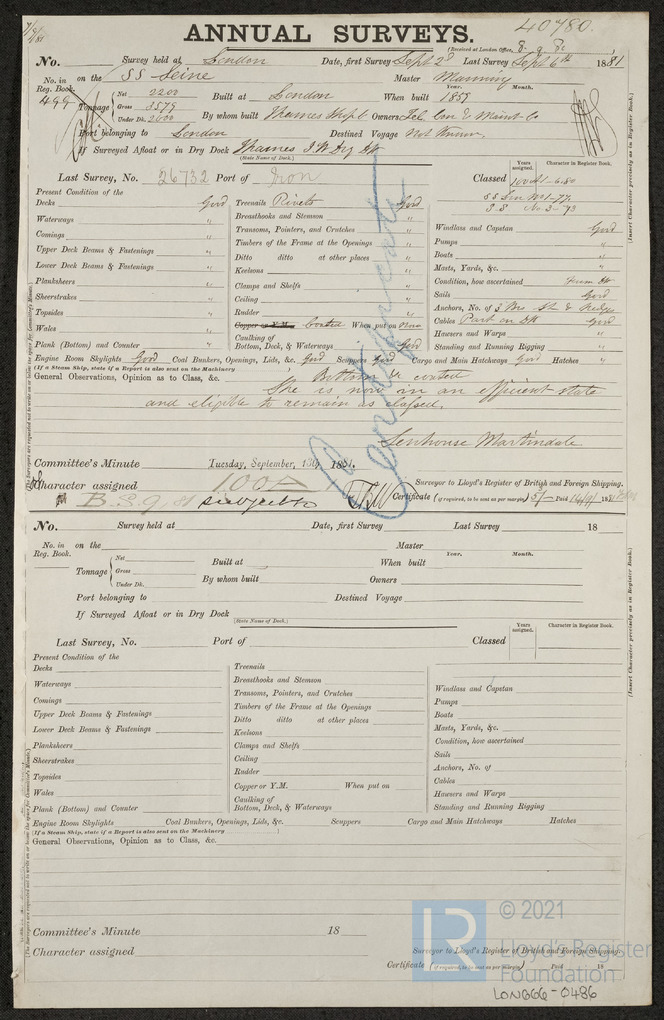 7/9/81
ANNUAL SURVEYS. 40780.
(Received at London Office,
No. Survey held at London Date, first Survey Sept 2d Last Survey Sept 6th 1881
No. in Reg. Book. on the SS Seine Master Manning
499 Tonnage Net 2200 Gross 3579 Under Dk. 2600 Built at London When built 1859 Year. Month.
By whom built Thames Owners Tel. Con & Maint Co
Port belonging to London Destined Voyage Not Known
If Surveyed Afloat or in Dry Dock Thames I W Dry Dk
(State Name of Dock.)
Last Survey, No. 26732 Port of Iron Classed
Years assigned. Character in Register Book.
Present Condition of the
Decks Good Treenails Rivets Good
Waterways " Breasthooks and Stemson "
Comings " Transoms, Pointers, and Crutches " Windlass and Capstan Good
Timbers of the Frame at the Openings " Pumps "
Upper Deck Beams & Fastenings " Ditto ditto at other places " Boats "
Lower Deck Beams & Fastenings " Keelsons " Masts, Yards, &c. "
Planksheers " Clamps and Shelfs " Condition, how ascertained From Dk
Sheerstrakes " Ceiling " Sails Good
Topsides " Rudder " Anchors, No. of 3
Wales " Copper or Y.M. Coated When put on Now Cables Part on Dk Good
Plank (Bottom) and Counter " Caulking of Bottom, Deck, & Waterways Good Hawsers and Warps "
Standing and Running Rigging "
Engine Room Skylights Good Coal Bunkers, Openings, Lids, &c. Good Scuppers Good Cargo and Main Hatchways Good Hatches "
(If a Steam Ship, state if a Report is also sent on the Machinery
General Observations, Opinion as to Class, &c. Bottom coated
She is now in an efficient state
and eligible to remain as classed.
Certificate
Senhouse Martindale
Committee's Minute Tuesday, September, 13th 1881.
Surveyor to Lloyd's Register of British and Foreign Shipping.
Character assigned 100A
B.S. 9, 81 subject to
Certificate (if required, to be sent as per margin) 5/- Paid 14/9/ 1881
(Insert Character precisely as in Register Book.)
No. Survey held at Date, first Survey Last Survey 18
No. in Reg. Book. on the Master
Tonnage Net Gross Under Dk. Built at When built Year. Month.
By whom built Owners
Port belonging to Destined Voyage
If Surveyed Afloat or in Dry Dock
(State Name of Dock.)
Last Survey, No. Port of Classed
Years assigned. Character in Register Book.
Present Condition of the
Decks Treenails
Waterways Breasthooks and Stemson Windlass and Capstan
Comings Transoms, Pointers, and Crutches Pumps
Upper Deck Beams & Fastenings Timbers of the Frame at the Openings Boats
Ditto ditto at other places Masts, Yards, &c.
Lower Deck Beams & Fastenings Keelsons Condition, how ascertained
Planksheers Clamps and Shelfs Sails
Sheerstrakes Ceiling Anchors, No. of
Topsides Rudder Cables
Wales Copper or Y.M. When put on Hawsers and Warps
Plank (Bottom) and Counter Caulking of Bottom, Deck, & Waterways Standing and Running Rigging
Engine Room Skylights Coal Bunkers, Openings, Lids, &c. Scuppers Cargo and Main Hatchways Hatches
(If a Steam Ship, state if a Report is also sent on the Machinery
General Observations, Opinion as to Class, &c.
(Insert Character precisely as in Register Book.)
Committee's Minute 18
Character assigned Surveyor to Lloyd's Register of British and Foreign Shipping.
Certificate (if required, to be sent as per margin) Paid 18
LR © 2021
Lloyd's Register
Foundation
LON866-0486